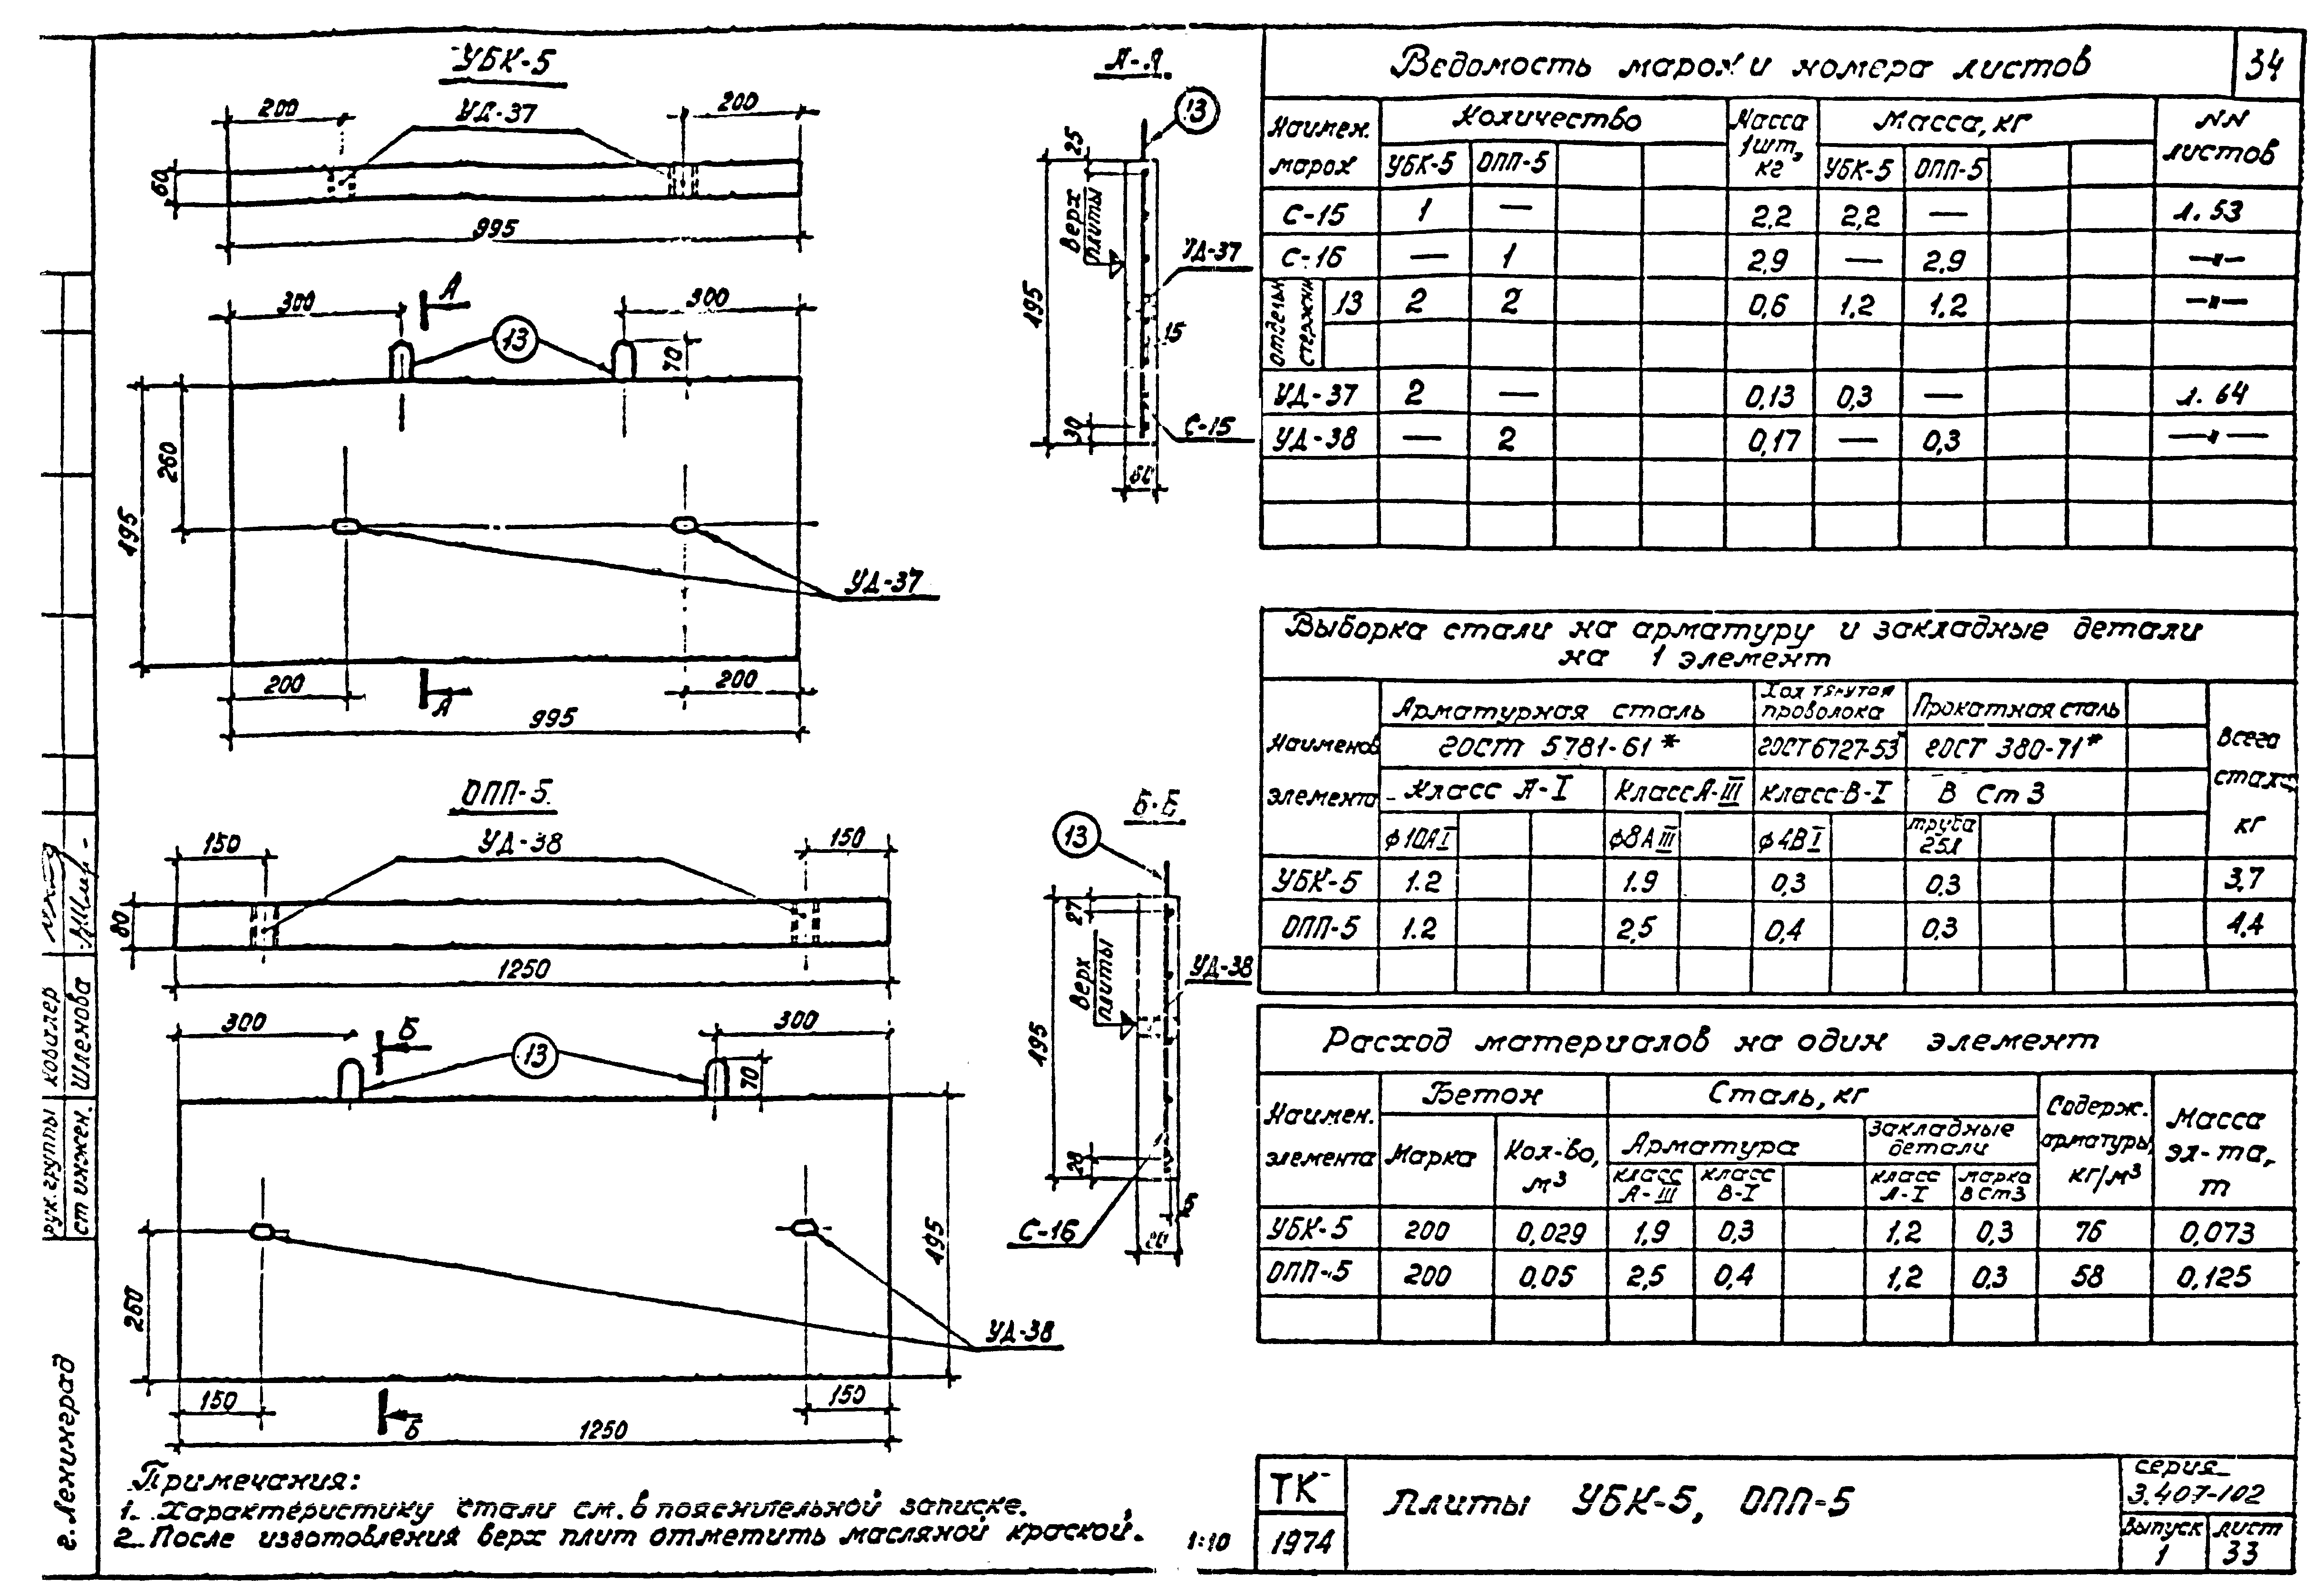 34
УБК-5
УД-37
200
200
60
995
300
А
300
13
70
260
495
УД-37
200
А
200
995
А-А
13
25
верх плиты
495
УД-37
15
30
С-15
60
ОПП-5
150
УД-38
150
80
1250
300
Б
300
13
70
495
260
УД-38
150
Б
150
1250
Б-Б
13
27
верх плиты
495
УД-38
28
5
С-16
80
Примечания:
1. Характеристику стали см. в пояснительной записке.
2. После изготовления верх плит отметить масляной краской.
1:10
Ведомость марок и номера листов
Наимен. марок | Количество | Масса 1шт, кг | Масса, кг | NN листов
УБК-5 | ОПП-5 | УБК-5 | ОПП-5
С-15 | 1 | — | 2,2 | 2,2 | — | л. 53
С-16 | — | 1 | 2,9 | — | 2,9 | —"—
отдельн. стержни | 13 | 2 | 2 | 0,6 | 1,2 | 1,2 | —"—
УД-37 | 2 | — | 0,13 | 0,3 | — | л. 64
УД-38 | — | 2 | 0,17 | — | 0,3 | —"—
Выборка стали на арматуру и закладные детали
на 1 элемент
Наименов элемента | Арматурная сталь | Хол тянутая проволока | Прокатная сталь | Всего стали кг
ГОСТ 5781-61* | ГОСТ 6727-53* | ГОСТ 380-71*
Класс А-I | Класс А-III | класс В-I | В Ст 3
ф10АI | ф8АIII | ф4ВI | труба 25х
УБК-5 | 1.2 | 1.9 | 0,3 | 0,3 | 3,7
ОПП-5 | 1.2 | 2,5 | 0,4 | 0,3 | 4,4
Расход материалов на один элемент
Наимен. элемента | Бетон | Сталь, кг | Содерж. арматуры, кг/м³ | Масса эл-та, т
Марка | Кол-во, м³ | Арматура | Закладные детали
класс А-III | класс В-I | класс А-I | марка В Ст3
УБК-5 | 200 | 0,029 | 1,9 | 0,3 | 1,2 | 0,3 | 76 | 0,073
ОПП-5 | 200 | 0,05 | 2,5 | 0,4 | 1,2 | 0,3 | 58 | 0,125
ТК
1974
Плиты УБК-5, ОПП-5
серия
3.407-102
Выпуск
1
лист
33
рук. группы Ковалер
ст инжен. Шленова
г. Ленинград